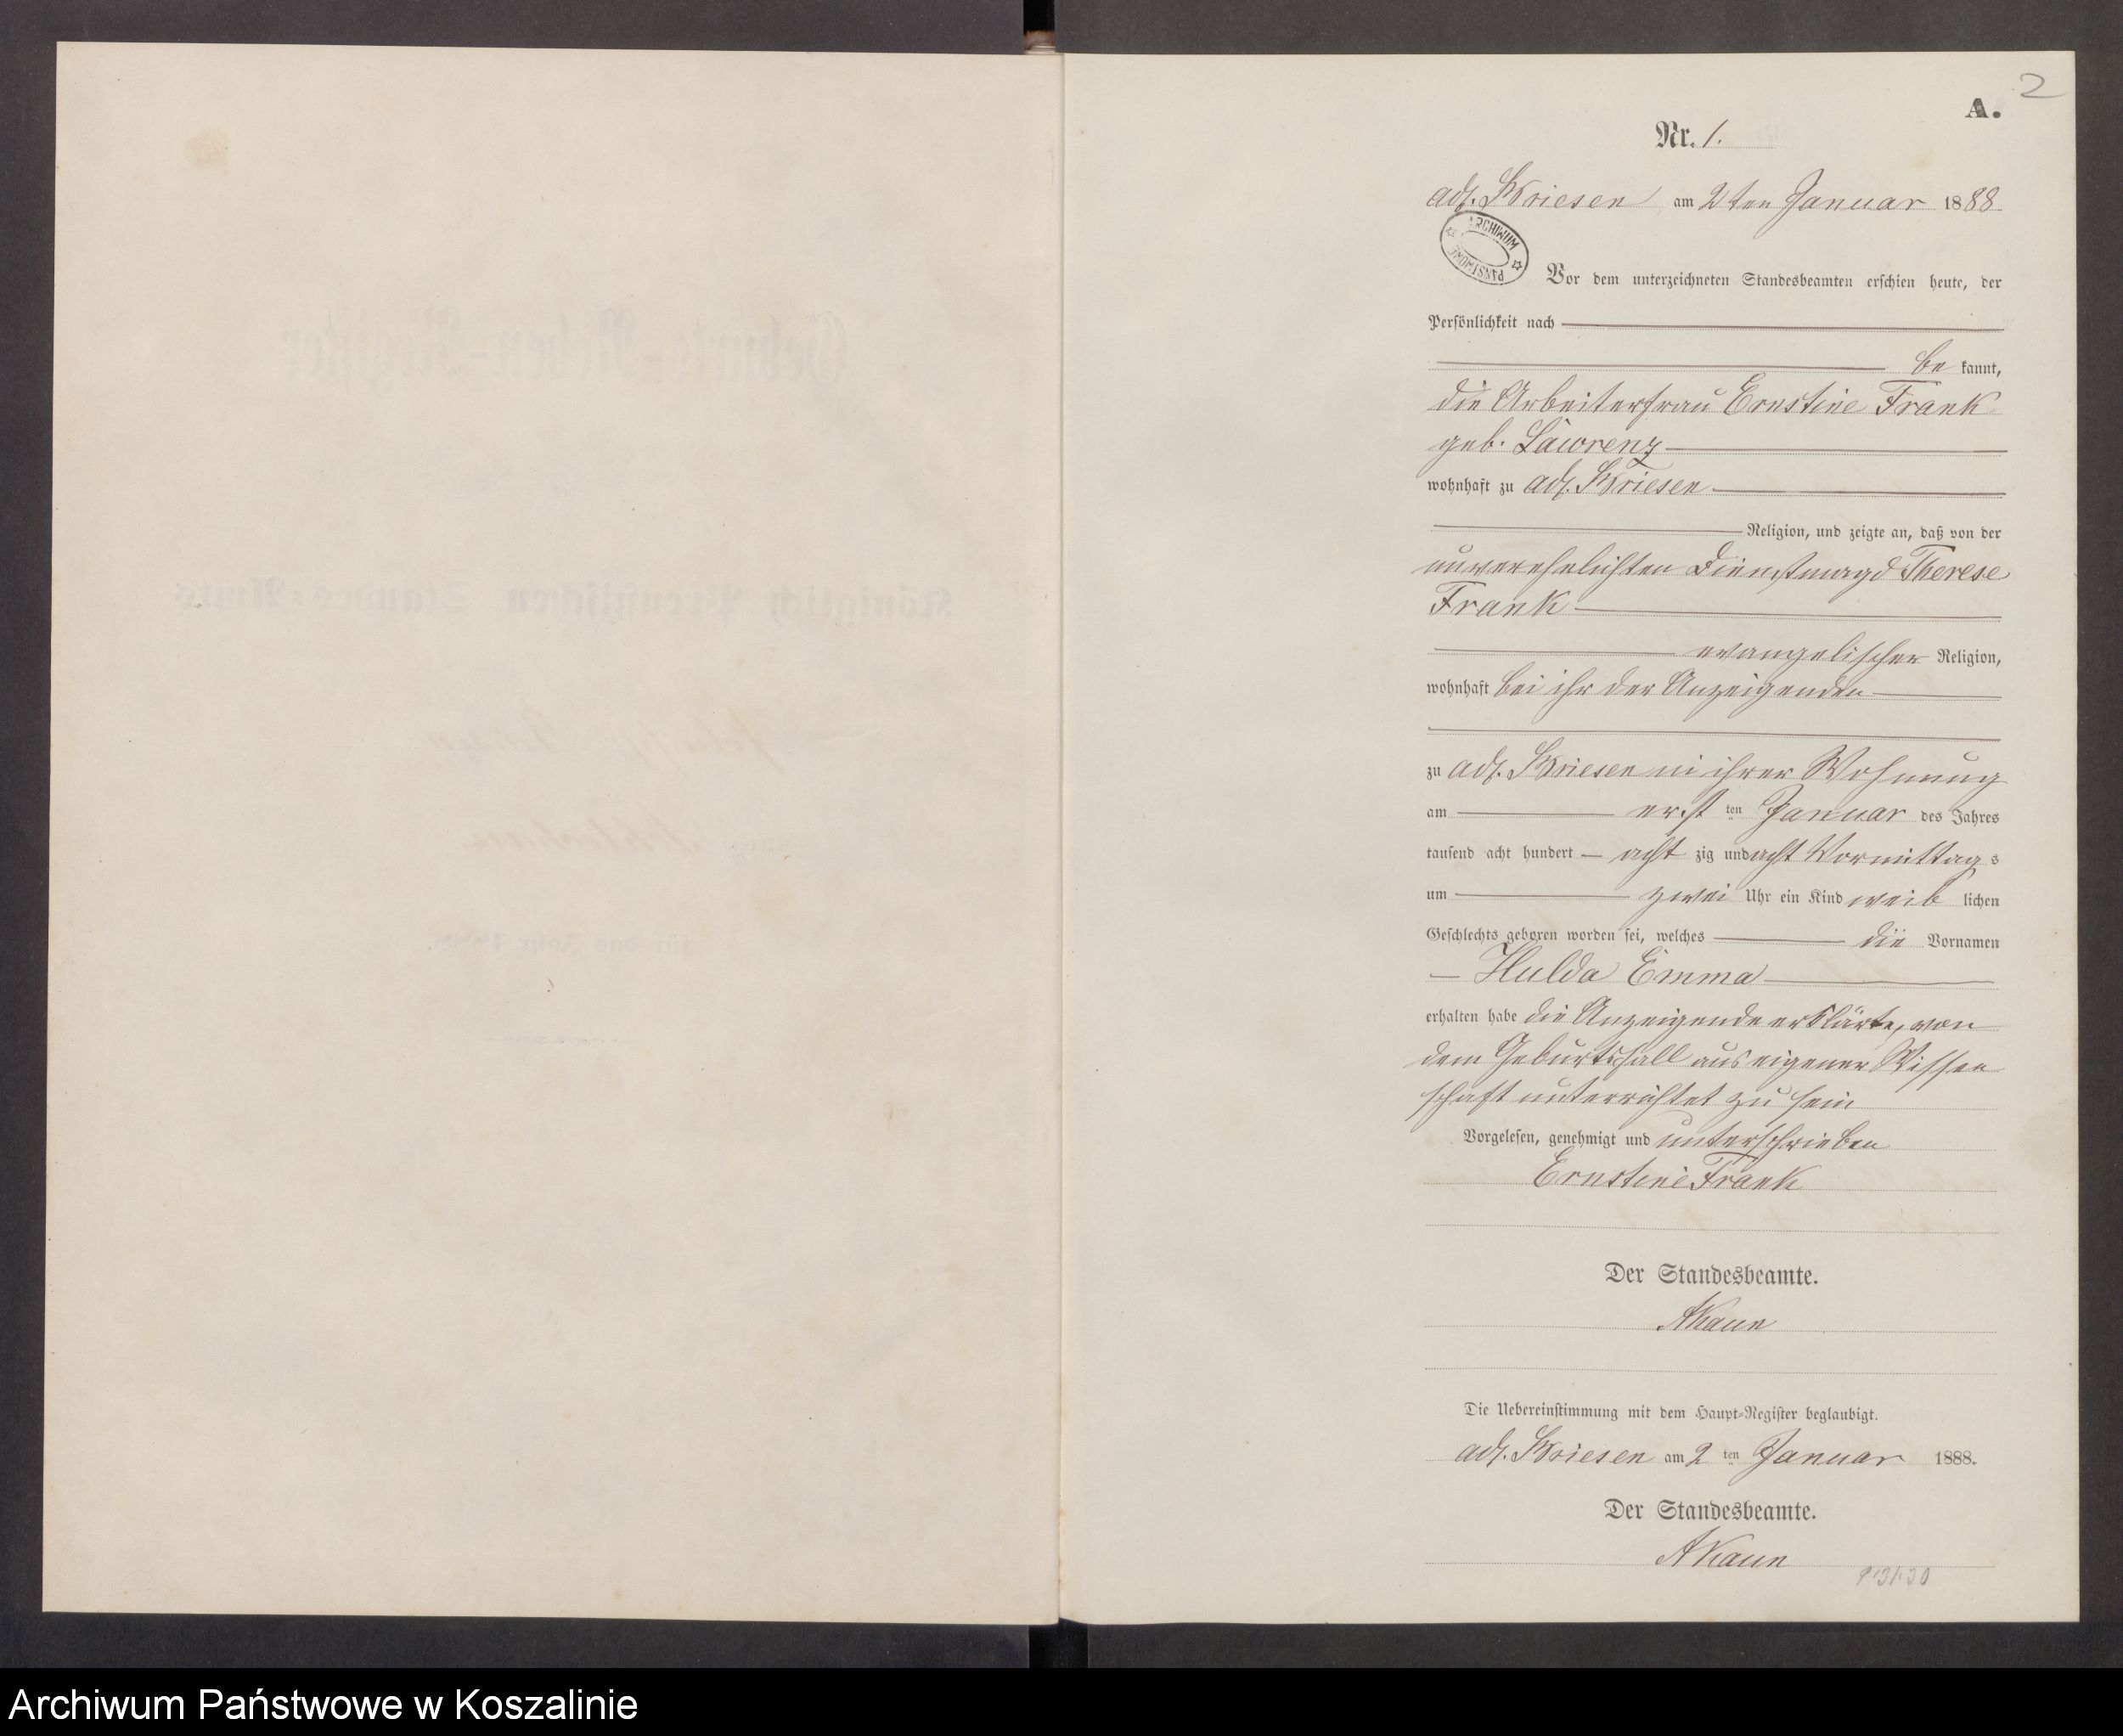 2
A.
Nr. 1.
adl. Briesen am 2ten Januar 1888
ARCHIWUM PAŃSTWOWE
Vor dem unterzeichneten Standesbeamten erschien heute, der
Persönlichkeit nach
be kannt,
die Arbeiterfrau Ernstine Frank
geb. Lawrenz
wohnhaft zu adl. Briesen
Religion, und zeigte an, daß von der
unverehelichten Dienstmagd Therese
Frank
evangelischer Religion,
wohnhaft bei ihr der Anzeigenden
zu adl. Briesen in ihrer Wohnung
am erst ten Januar des Jahres
tausend acht hundert acht zig und acht Vormittag s
um zwei Uhr ein Kind weib lichen
Geschlechts geboren worden sei, welches die Vornamen
Hulda Emma
erhalten habe die Anzeigende erklärte, von
dem Geburtsfall aus eigener Wissen
schaft unterrichtet zu sein
Vorgelesen, genehmigt und unterschrieben
Ernstine Frank
Der Standesbeamte.
AKaun
Die Uebereinstimmung mit dem Haupt-Register beglaubigt.
adl. Briesen am 2 ten Januar 1888.
Der Standesbeamte.
AKaun
Archiwum Państwowe w Koszalinie